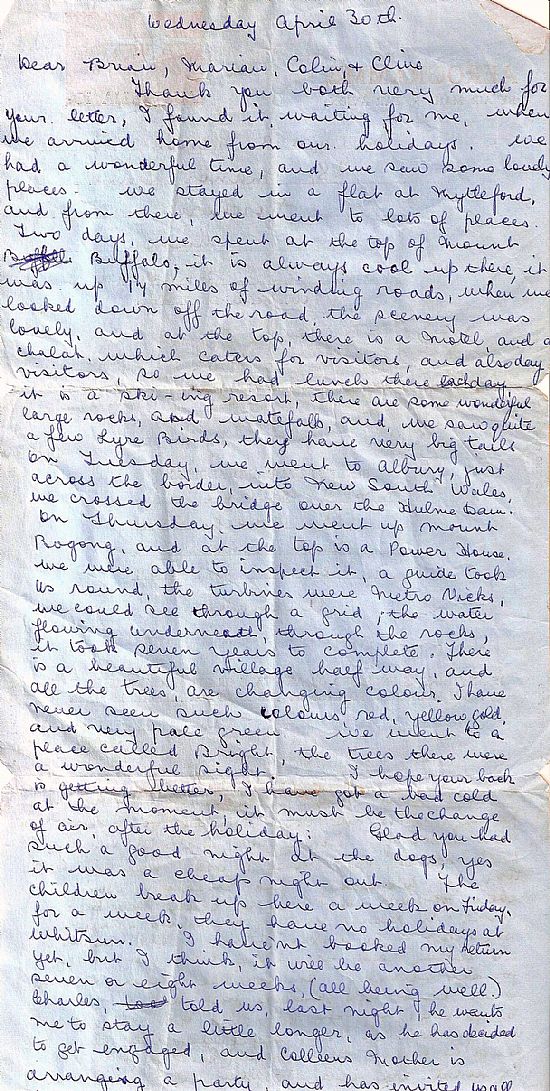 Wednesday April 30th.
Dear Brian, Marian, Colin, & Clive
Thank you both very much for
your letter, I found it waiting for me, when
we arrived home from our holidays. We
had a wonderful time, and we saw some lovely
places. We stayed in a flat at Mytleford,
and from there, we went to lots of places.
Two days, we spent at the top of Mount
Buffalo, it is always cool up there, it
was up 14 miles of winding roads, when we
looked down off the road the scenery was
lovely, and at the top, there is a Motel, and a
chalat, which caters for visitors, and also day
visitors, so we had lunch there each day
it is a ski-ing resort, there are some wonderful
large rocks, and waterfalls, and, we saw quite
a few Lyre Birds, they have very big tails
On Tuesday, we went to Albury, just
across the border, into New South Wales,
we crossed the bridge over the Hulme Dam.
On Thursday, we went up mount
Bogong, and at the top is a Power House.
we were able to inspect it, a guide took
us round, the turbines were Metro Vicks,
we could see through a grid, the water
flowing underneath, through the rocks,
it took seven years to complete. There
is a beautiful village half way, and
all the trees, are changing colour. I have
never seen such colours, red, yellow, gold,
and very pale green. We went to a
place called Bright, the trees there were
a wonderful sight. I hope your back
is getting better, I have got a bad cold
at the moment, it must be the change
of air, after the holiday: Glad you had
such a good night at the dogs, yes
it was a cheap night out. The
children break up here a week on Friday,
for a week, they have no holidays at
Whitsun. I havent booked my return
yet, but I think, it will be another
seven or eight weeks, (all being well.)
Charles, told us, last night, he wants
me to stay a little longer, as he has decided
to get engaged, and Colleens Mother is
arranging a party, and has invited us all